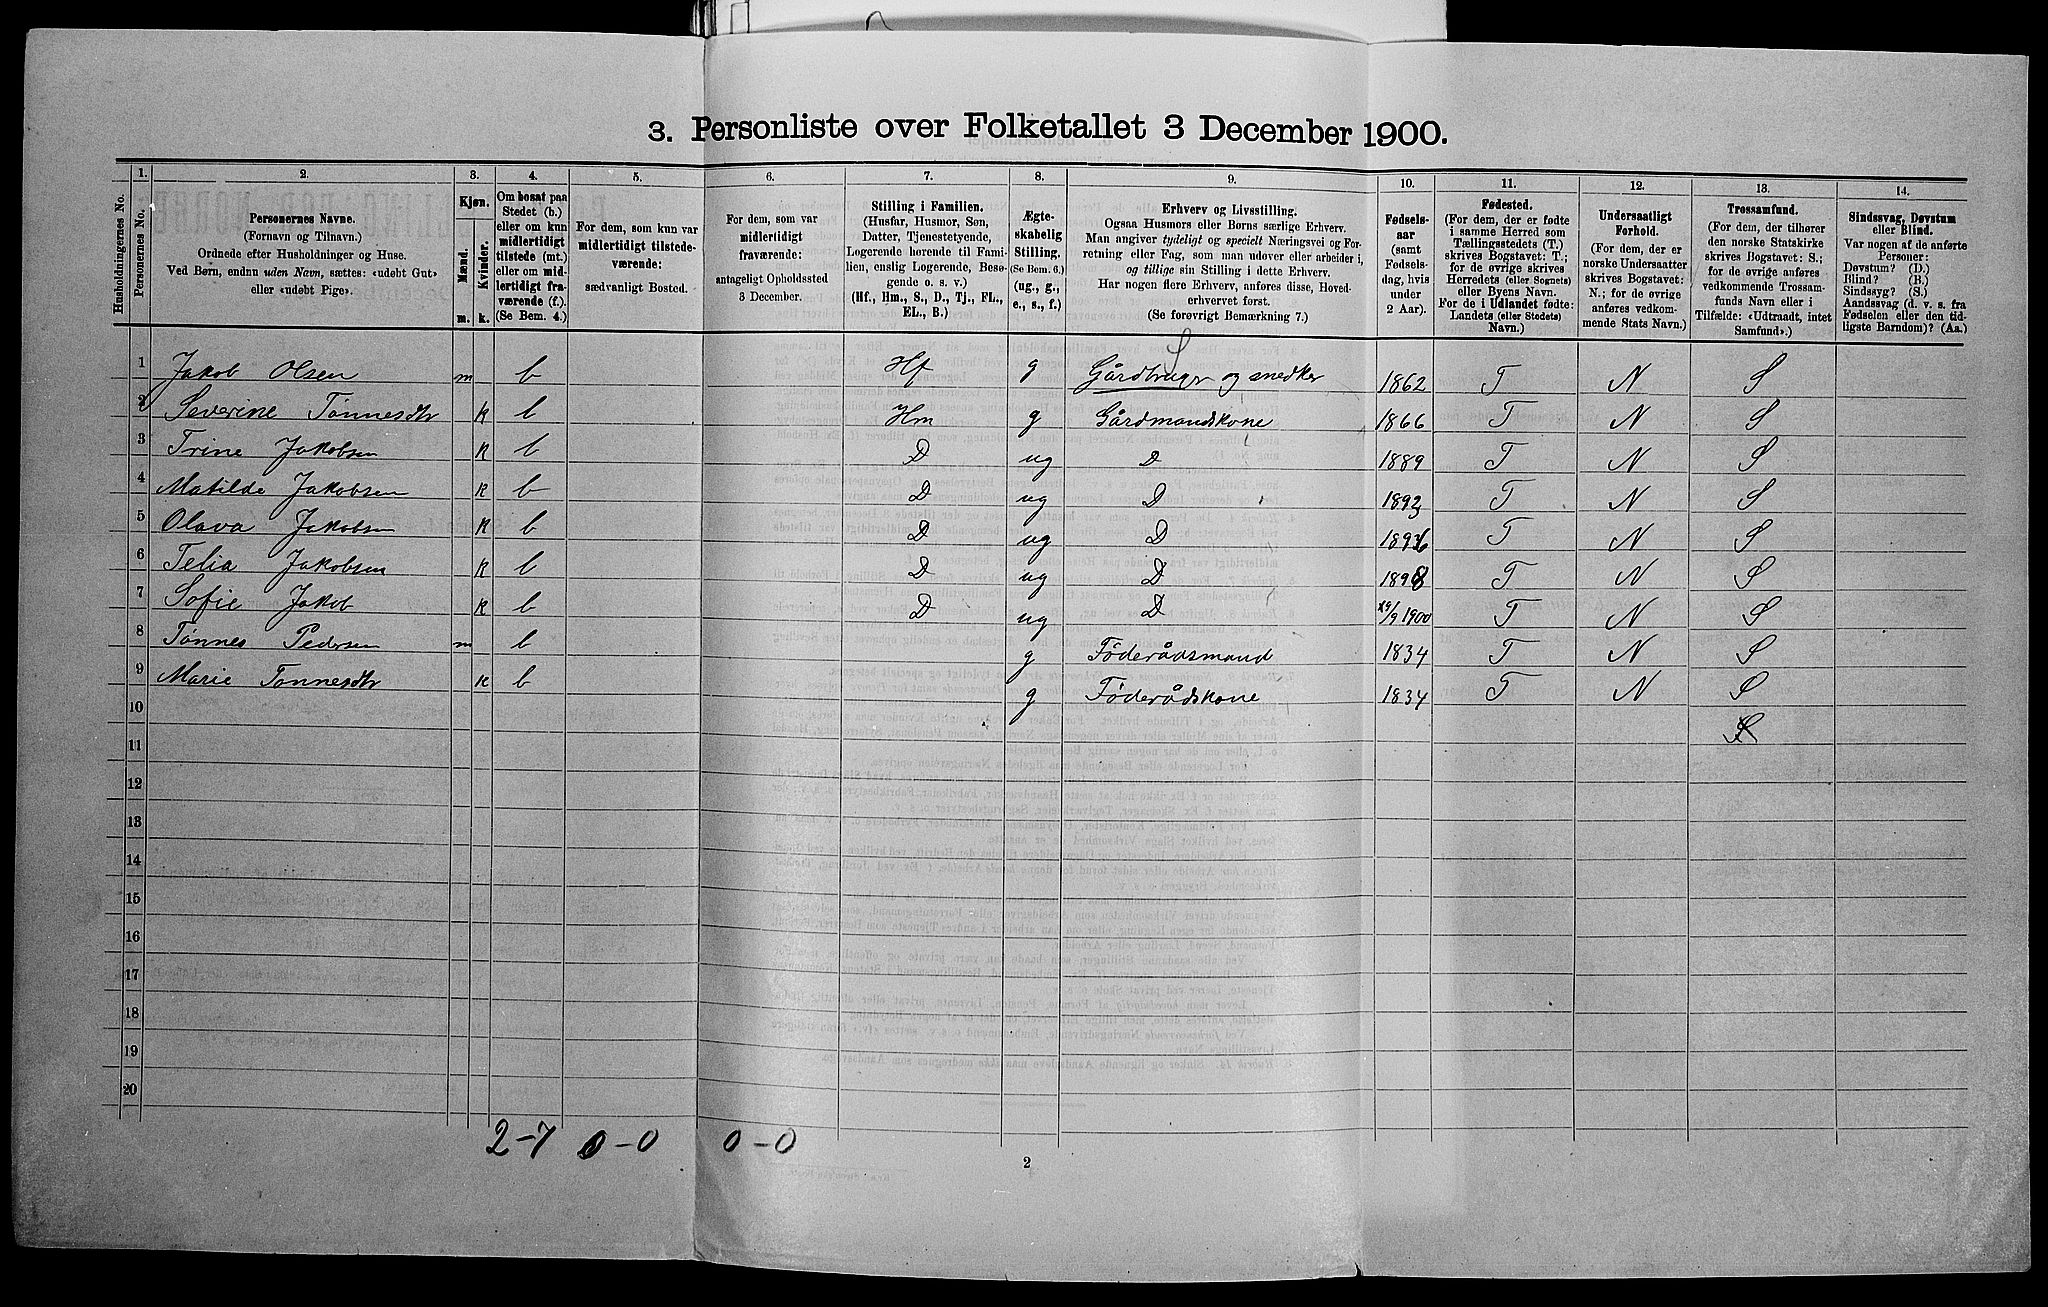 3. Personliste over Folketallet 3 December 1900.
1. 2. 3. 4. 5. 6. 7. 8. 9. 10. 11. 12. 13. 14.
Husholdningernes No.
Personernes No.
Personernes Navne.
(Fornavn og Tilnavn.)
Ordnede efter Husholdninger og Huse.
Ved Børn, endnu uden Navn, sættes: «udøbt Gut»
eller «udøbt Pige».
Kjøn.
Mænd.
Kvinder.
m. k.
Om bosat paa
Stedet (b.)
eller om kun
midlertidigt
tilstede (mt.)
eller om mid-
lertidigt fra-
værende (f.).
(Se Bem. 4.)
For dem, som kun var
midlertidigt tilstede-
værende:
sædvanligt Bosted.
For dem, som var
midlertidigt
fraværende:
antageligt Opholdssted
3 December.
Stilling i Familien.
(Husfar, Husmor, Søn,
Datter, Tjenestetyende,
Logerende hørende til Fami-
lien, enslig Logerende, Besø-
gende o. s. v.)
(Hf., Hm., S., D., Tj., FL.,
EL., B.)
Ægte-
skabelig
Stilling.
(Se Bem. 6.)
(ug., g.,
e., s., f.)
Erhverv og Livsstilling.
Ogsaa Husmors eller Børns særlige Erhverv.
Man angiver tydeligt og specielt Næringsvei og For-
retning eller Fag, som man udøver eller arbeider i,
og tillige sin Stilling i dette Erhverv.
Har nogen flere Erhverv, anføres disse, Hoved-
erhvervet først.
(Se forøvrigt Bemærkning 7.)
Fødsels-
aar
(samt
Fødsels-
dag, hvis
under
2 Aar).
Fødested.
(For dem, der er fødte
i samme Herred som
Tællingsstedets (T.)
skrives Bogstavet: T.;
for de øvrige skrives
Herredets (eller Sognets)
eller Byens Navn.
For de i Udlandet fødte:
Landets (eller Stedets)
Navn.)
Undersaatligt
Forhold.
(For dem, der er
norske Undersaatter
skrives Bogstavet:
N.; for de øvrige
anføres vedkom-
mende Stats Navn.)
Trossamfund.
(For dem, der tilhører
den norske Statskirke
skrives Bogstavet: S.;
for de øvrige anføres
vedkommende Trossam-
funds Navn eller i
Tilfælde: «Udtraadt, intet
Samfund».)
Sindssvag, Døvstum
eller Blind.
Var nogen af de anførte
Personer:
Døvstum? (D.)
Blind? (B.)
Sindssyg? (S.)
Aandssvag (d. v. s. fra
Fødselen eller den tid-
ligste Barndom)? (Aa.)
S
1 Jakob Olsen m b Hf g Gårdbruger og snedker 1862 T N S
2 Severine Tønnesdtr k b Hm g Gårdmandskone 1866 T N S
3 Trine Jakobsen k b D ug D 1889 T N S
4 Matilde Jakobsen k b D ug D 1893 T N S
5 Olava Jakobsen k b D ug D 1896 T N S
6 Telia Jakobsen k b D ug D 1898 T N S
7 Sofie Jakob k b D ug D 29/9 1900 T N S
8 Tønnes Pedersen m b g Føderådsmand 1834 T N S
9 Marie Tønnesdtr k b g Føderådskone 1834 T N S
10 S
11
12
13
14
15
16
17
18
19
20
2-7 0-0 0-0
2